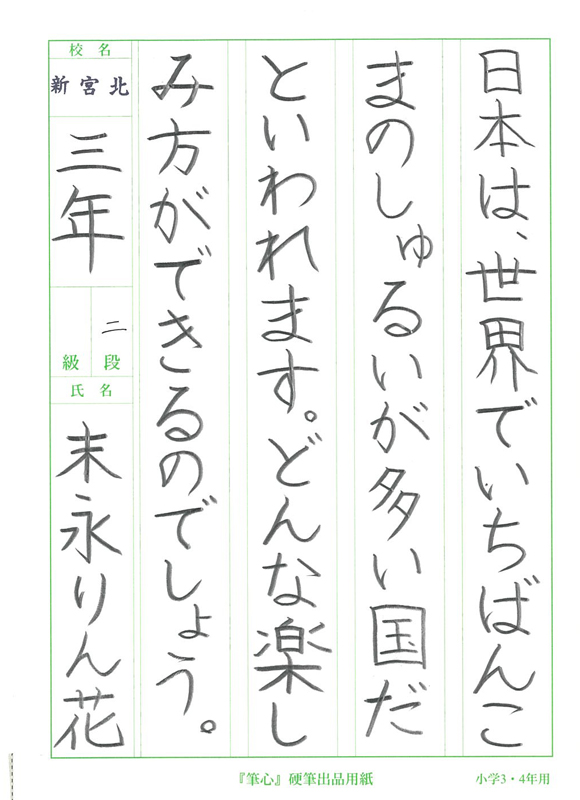 日本は、世界でいちばんこ
まのしゅるいが多い国だ
といわれます。どんな楽し
み方ができるのでしょう。
校名
新宮北
三年
二
段
級
氏名
末永りん花
『筆心』硬筆出品用紙
小学3・4年用